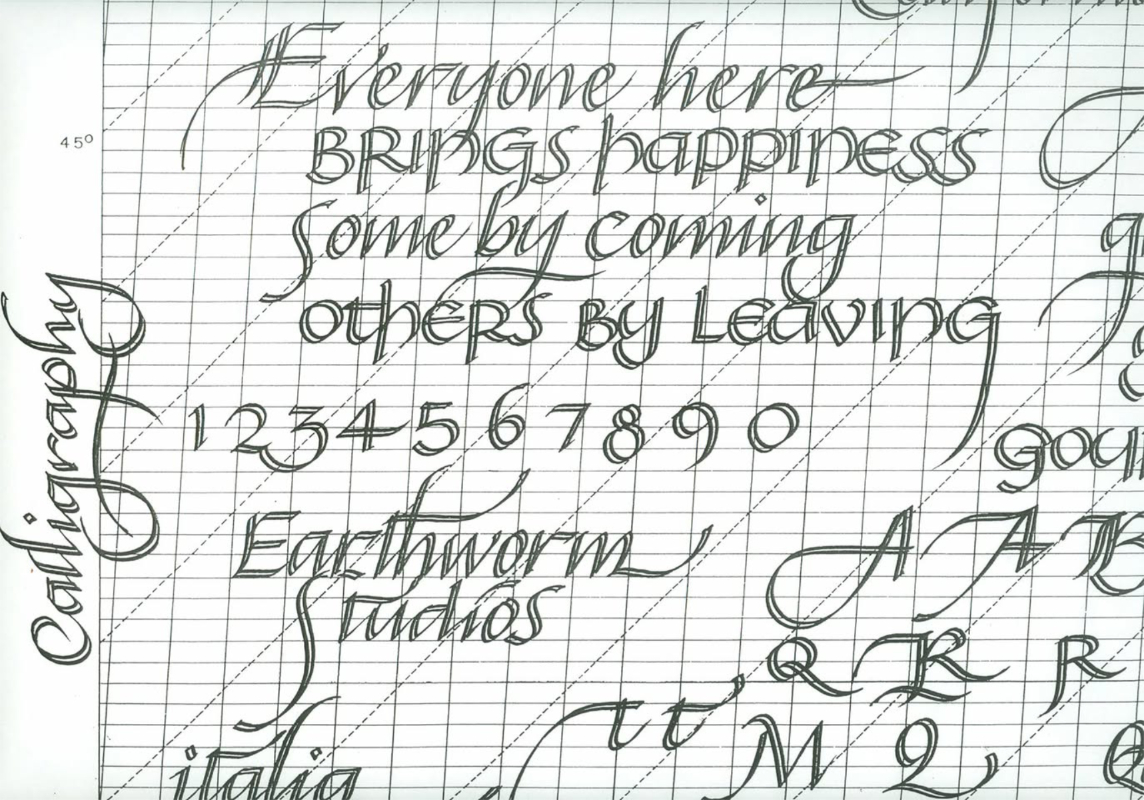 45º
Calligraphy
Everyone here
BRINGS happiness
Some by coming
others By Leaving
1 2 3 4 5 6 7 8 9 0
Earthworm
Studios
A A
Q R R
t t M Q